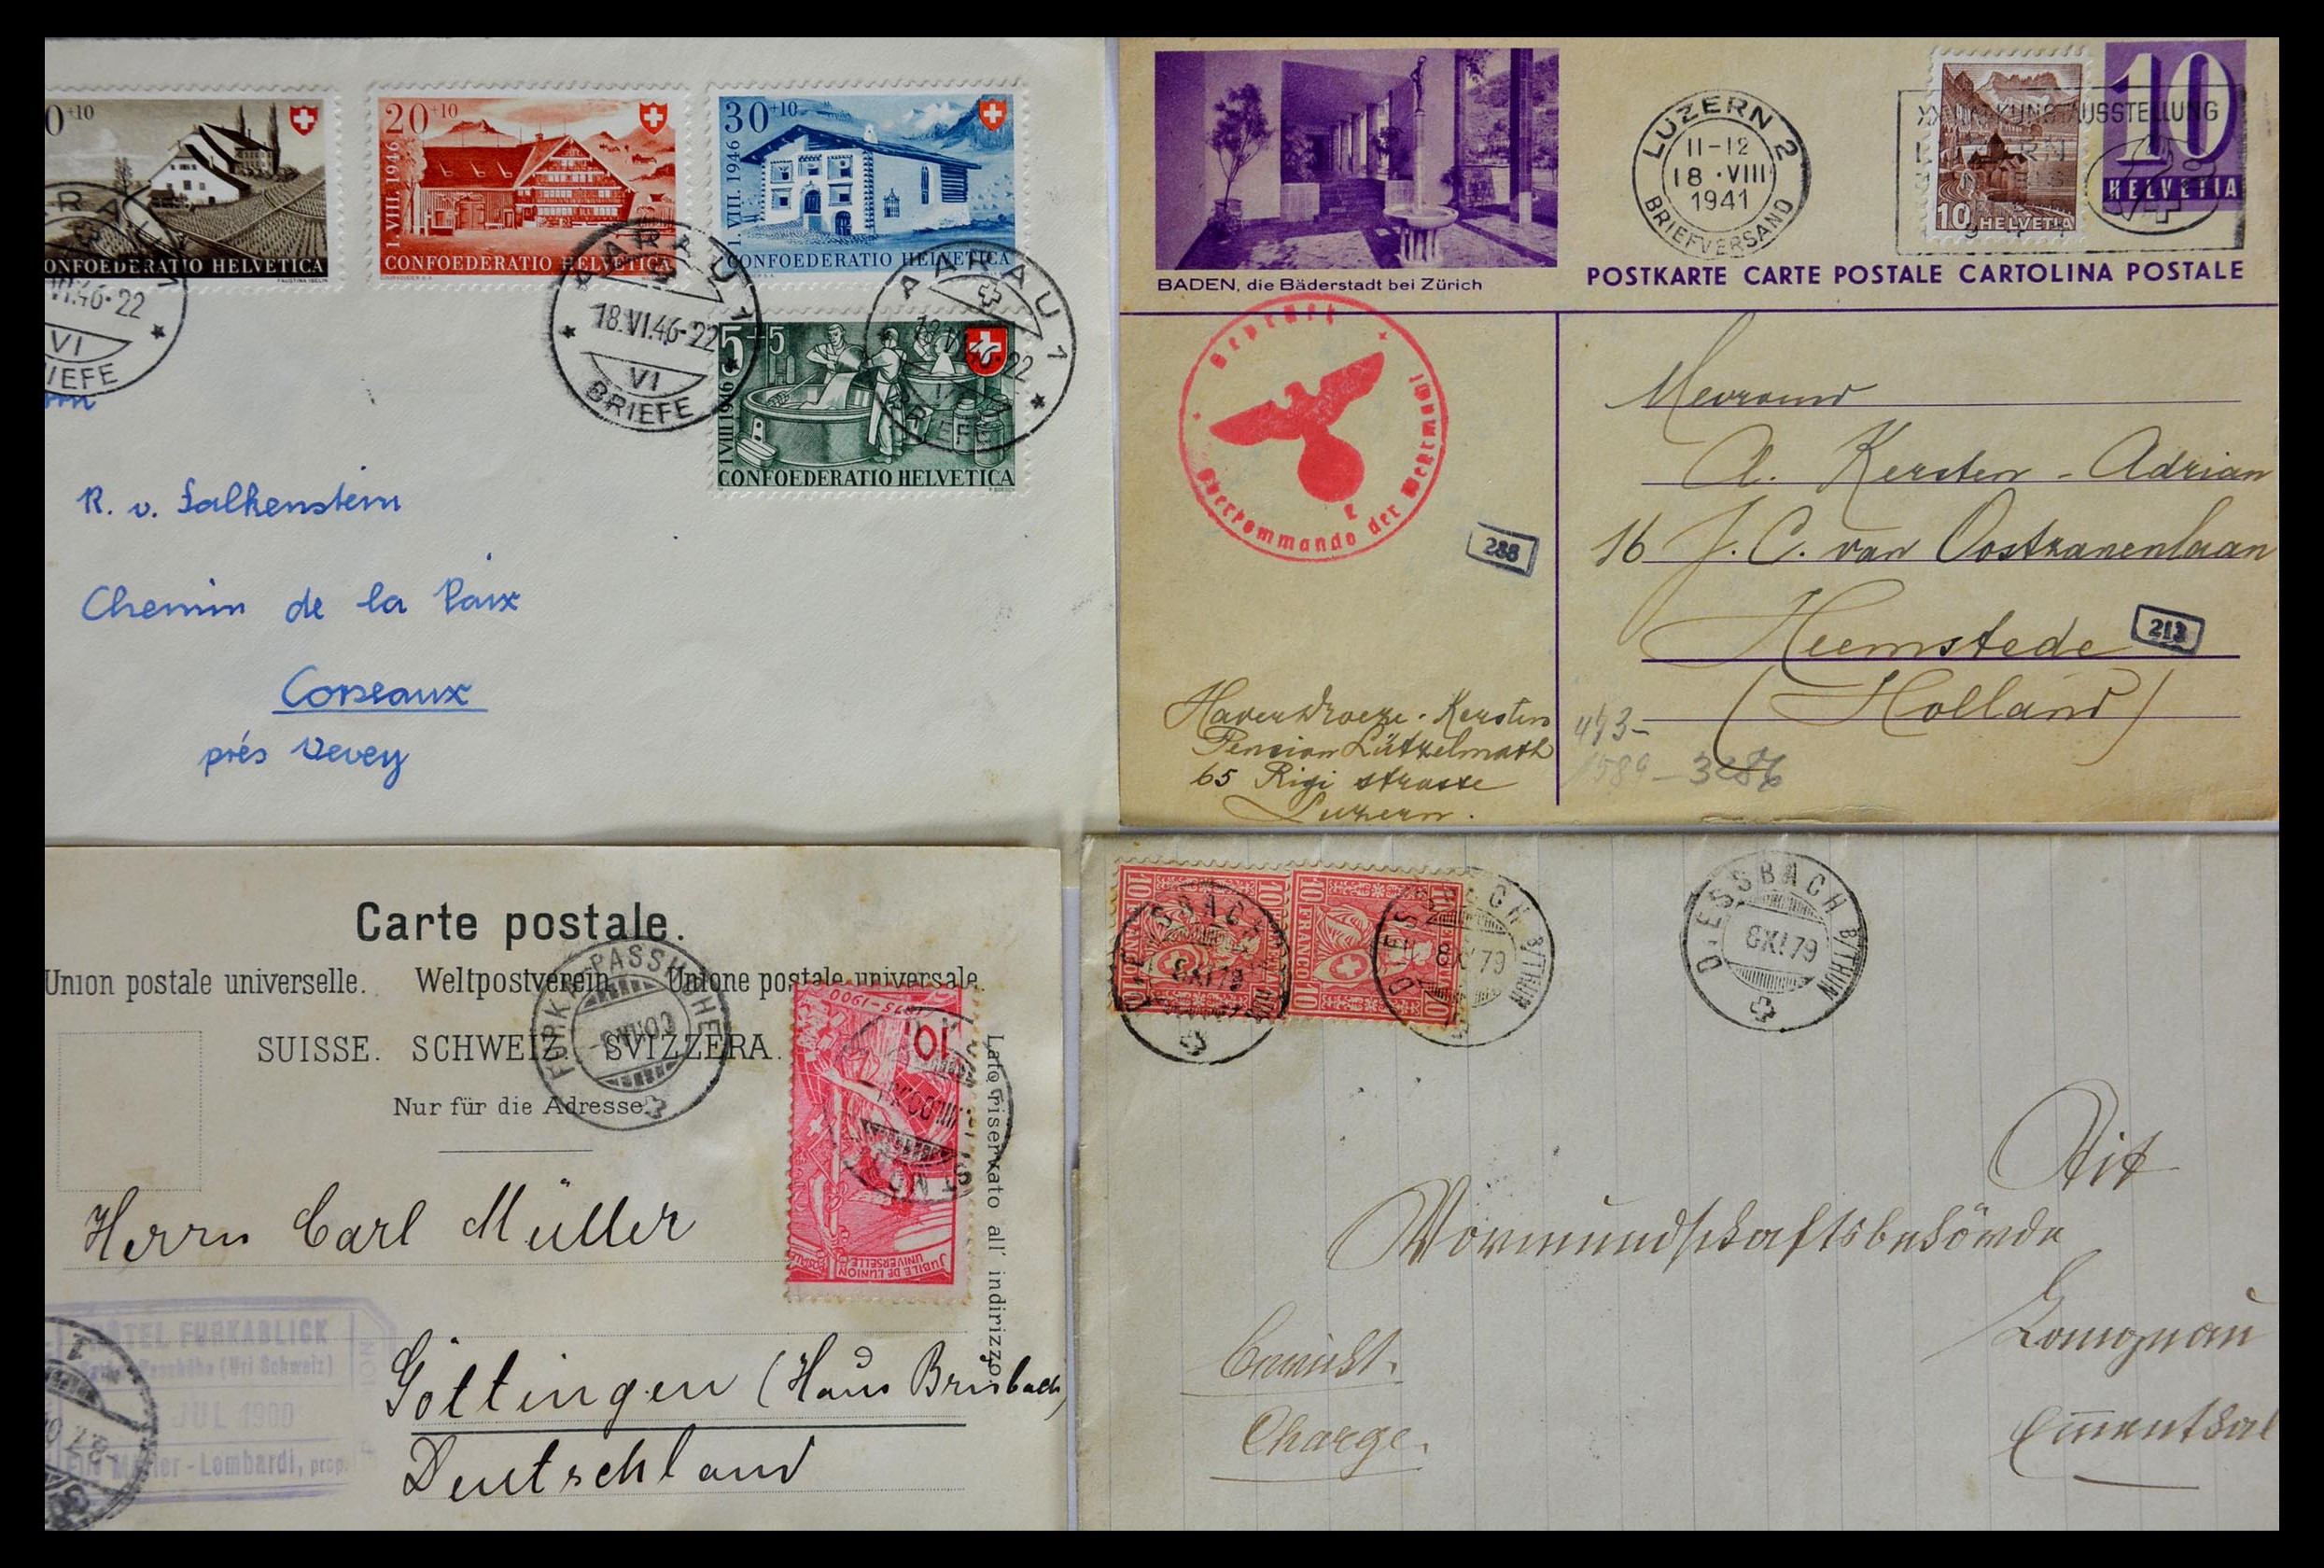 0+10
CONFOEDERATIO HELVETICA
20+10
1. VIII. 1946
CONFOEDERATIO HELVETICA
30+10
1. VIII. 1946
CONFOEDERATIO HELVETICA
VI.46-22
VI
BRIEFE
AARAU 1
18.VI.46-22
VI
BRIEFE
AARAU 1
18.VI.46-22
VI
BRIEFE
5+5
1.VIII.1946
CONFOEDERATIO HELVETICA
R. v. Falkenstein
Chemin de la Paix
Corseaux
près Vevey
BADEN, die Bäderstadt bei Zürich
LUZERN 2
11-12
18.VIII
1941
BRIEFVERSAND
AUSSTELLUNG
10 HELVETIA
10
HELVETIA
POSTKARTE CARTE POSTALE CARTOLINA POSTALE
Geprüft
Oberkommando der Wehrmacht
288
Mevrouw
A. Kersten - Adrian
16 J. C. van Oostzanenlaan
Heemstede
213
(Holland)
Pension Lützelmatt
65 Rigi strasse
Luzern.
473-
1589 - 3286
Carte postale.
Union postale universelle. Weltpostverein. Unione postale universale.
SUISSE. SCHWEIZ. SVIZZERA.
Nur für die Adresse
Lato riservato all' indirizzo.
FURKA-PASSHÖHE
10
1875-1900
JUBILÉ DE L'UNION
POSTALE
UNIVERSELLE
Herrn Carl Müller
Göttingen (Haus Brisbach)
Deutschland
HÔTEL FURKABLICK
(Uri Schweiz)
JUL 1900
Müller-Lombardi, prop.
10 FRANCO 10
10 FRANCO 10
DIESSBACH B/THUN
8 XI 79
DIESSBACH B/THUN
8 XI 79
DIESSBACH B/THUN
8 XI 79
Vormundschaftsbehörde
Langnau
Emmenthal
Charge.